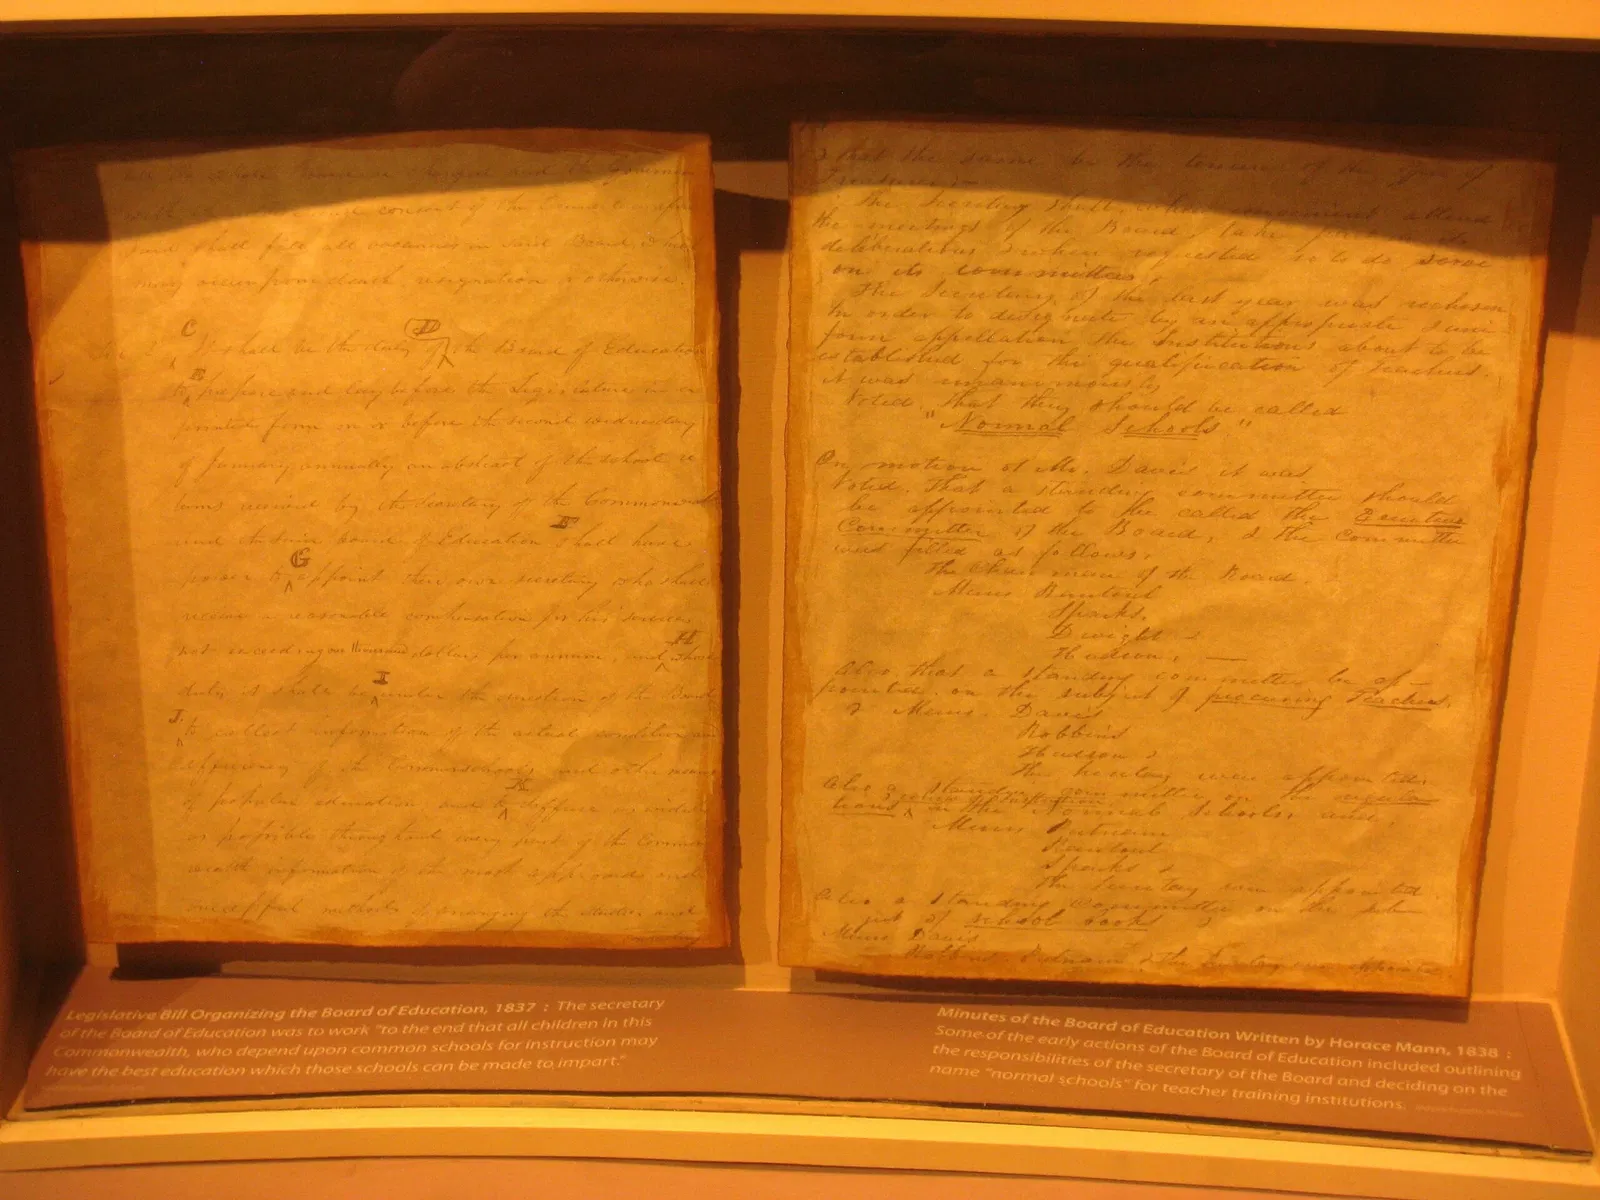 and the Governor
with consent of the Council
shall fill all vacancies in said Board, which
may occur from death resignation or otherwise.
C D
It shall be the duty of the Board of Education
E
to prepare and lay before the Legislature in a
printed form on or before the second Wednesday
of January annually an abstract of the school re
turns received by the Secretary of the Commonwealth
F
and the said board of Education shall have
G
power to appoint their own secretary who shall
receive a reasonable compensation for his services
H
not exceeding one thousand dollars per annum, and whose
I
duty it shall be under the direction of the Board
J.
to collect information of the actual condition and
efficiency of the Common schools and other means
K
of popular education and to diffuse as widely
as possible throughout every part of the Common
wealth information of the most approved and
successful methods of arranging the studies and
conducting
Legislative Bill Organizing the Board of Education, 1837 : The secretary
of the Board of Education was to work "to the end that all children in this
Commonwealth, who depend upon common schools for instruction may
have the best education which those schools can be made to impart."
that the same be the tenure of the office of
The Secretary shall, when convenient attend
the meetings of the Board, take part in its
deliberations & when requested so to do serve
on its committees.
The Secretary of the last year was rechosen
In order to designate by an appropriate & uni
form appellation the Institutions about to be
established for the qualification of teachers.
it was unanimously
Voted, That they should be called
"Normal Schools."
On motion of Mr. Davis it was
Voted, That a standing committee should
be appointed to be called the Executive
Committee of the Board, & the Committee
was filled as follows,
The Chairman of the Board.
Messrs Rantoul
Sparks,
Dwight &
Hudson,
Also that a standing committee be ap-
pointed on the subject of procuring Teachers,
& Messrs. Davis
Robbins
Hudson &
the Secretary were appointed.
Also a standing committee on the regula
tions in the Normal Schools, and,
Messrs Putnam
Rantoul
Sparks &
the Secretary were appointed.
Also a standing Committee on the sub
ject of school books &
Messrs Davis
Robbins, Putnam & the Secretary were appointed
Minutes of the Board of Education Written by Horace Mann, 1838 :
Some of the early actions of the Board of Education included outlining
the responsibilities of the secretary of the Board and deciding on the
name "normal schools" for teacher training institutions.